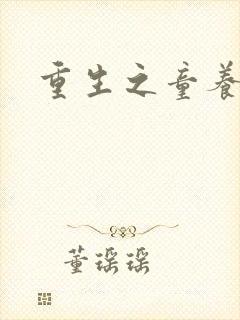 重生之童养
董瑶瑶